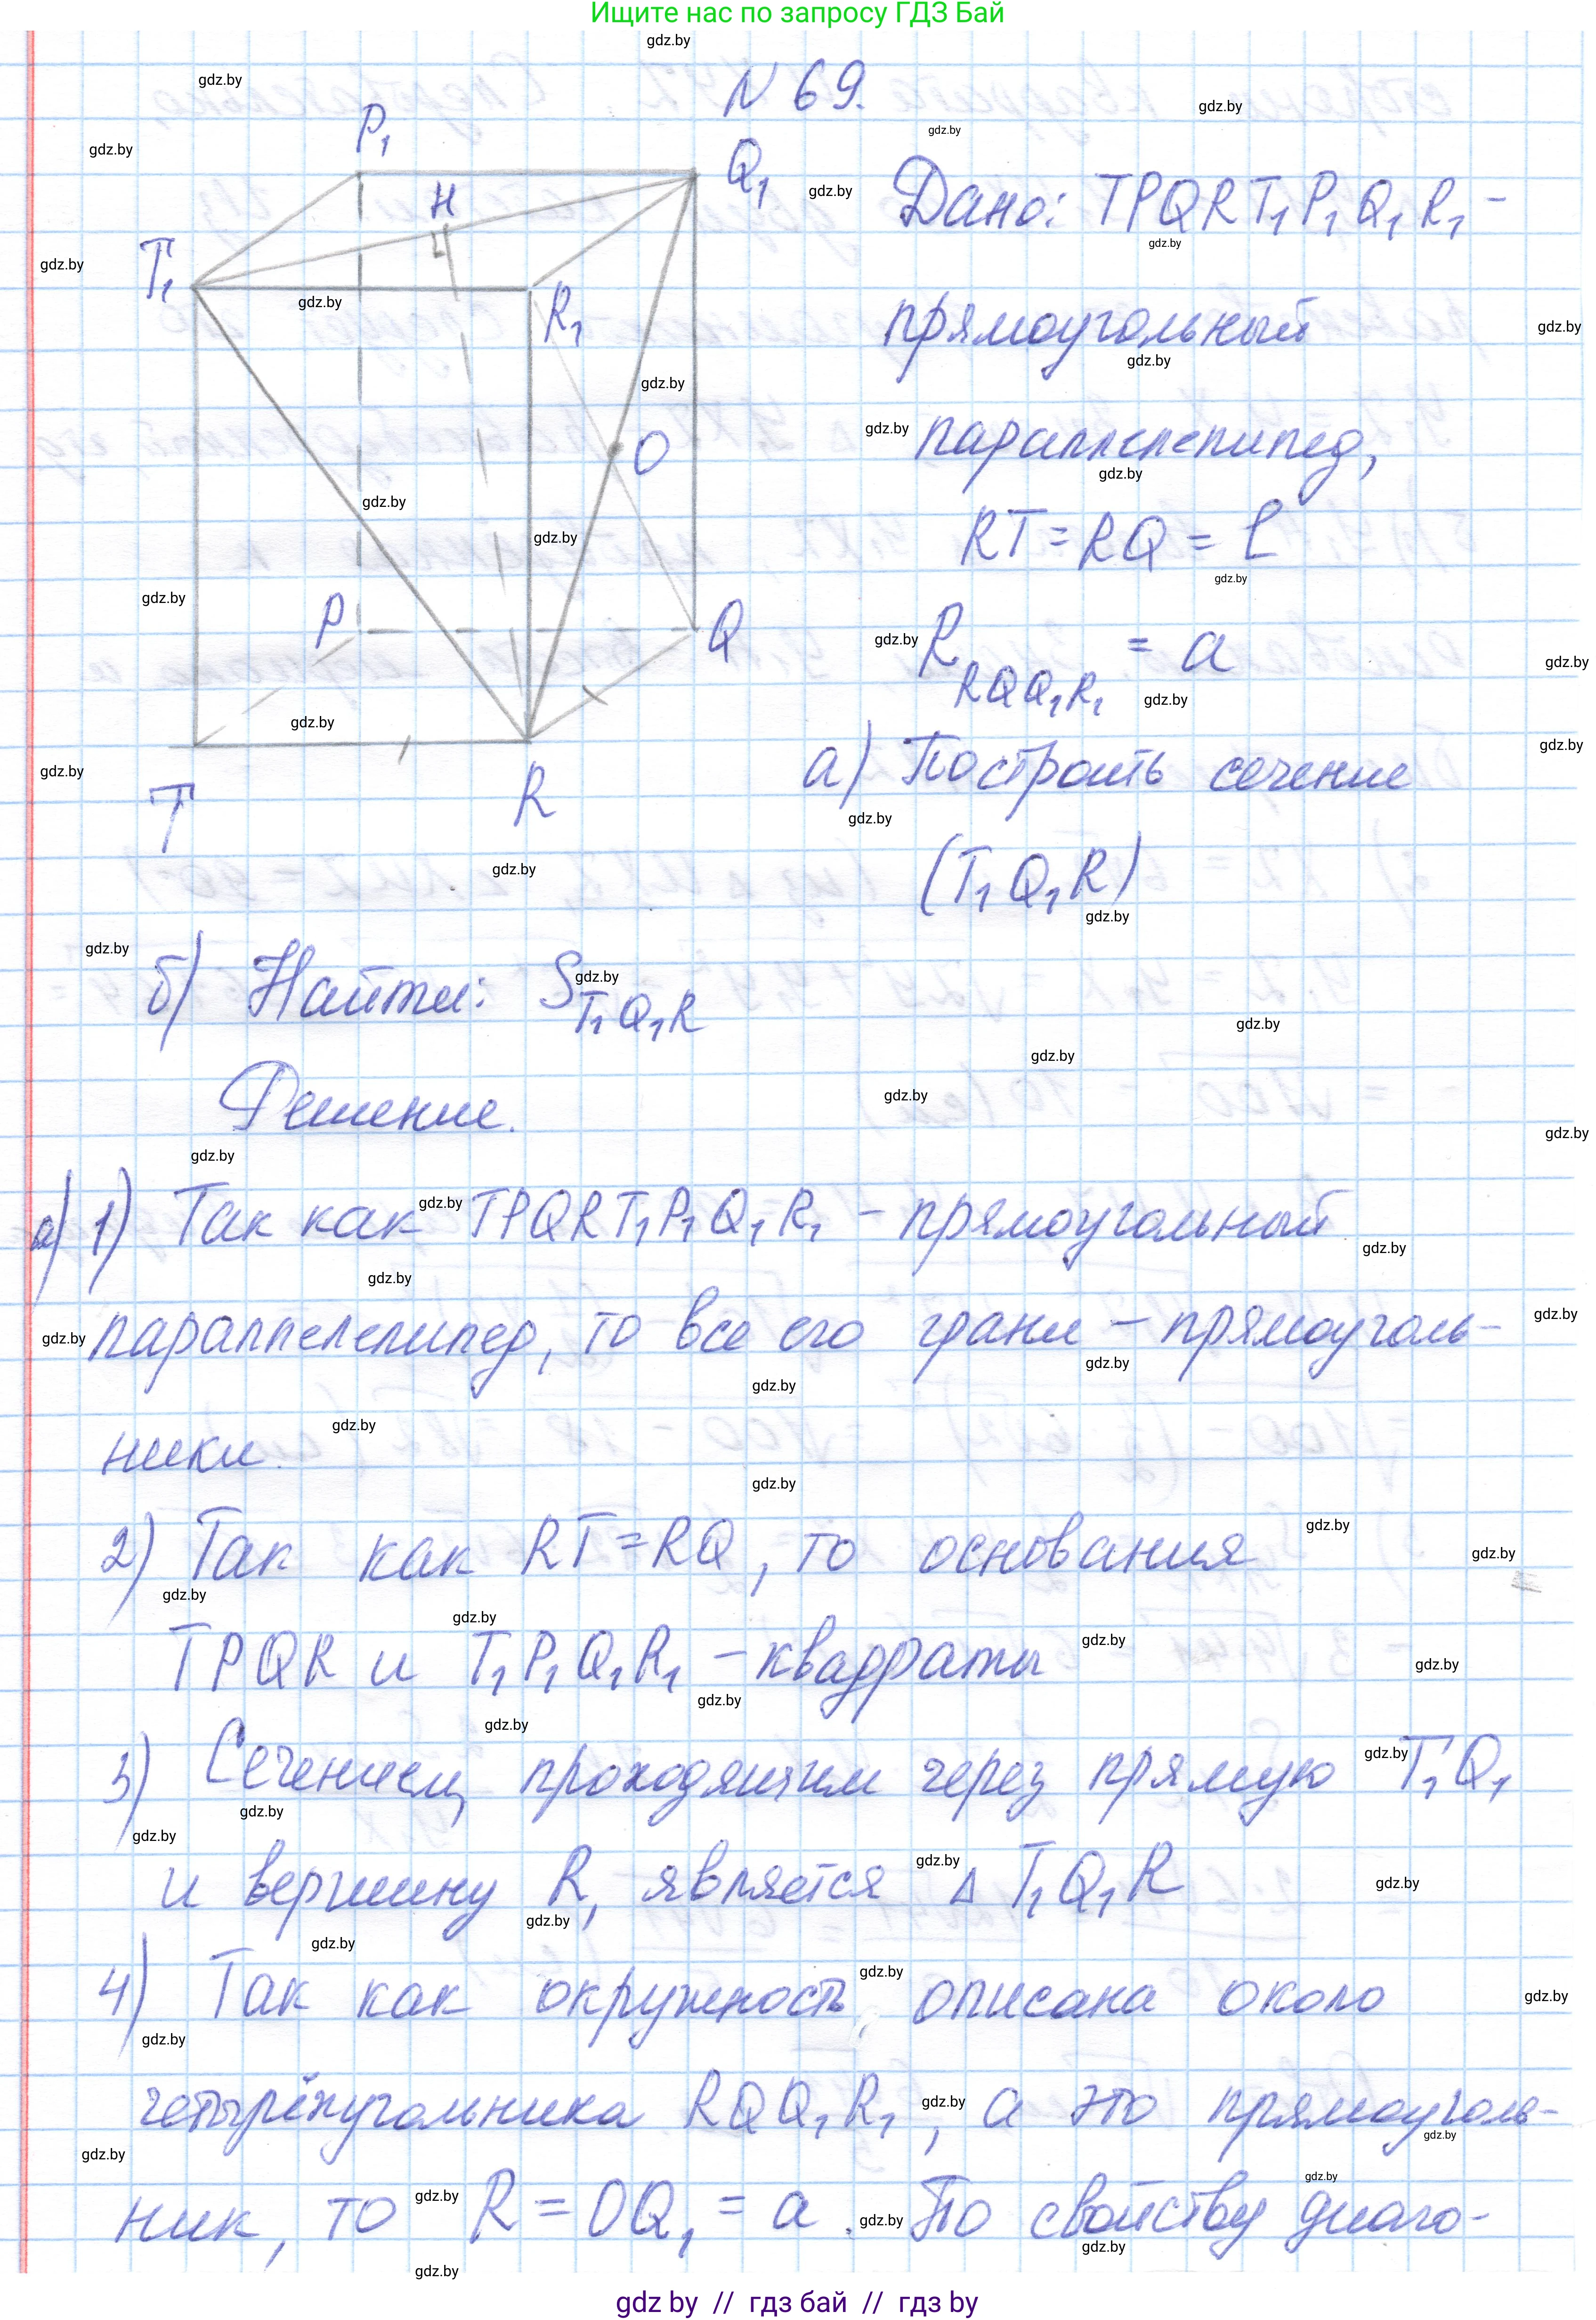 Ищите нас по запросу ГДЗ Бай
N 69.
P₁
H
Q₁
T₁
R₁
O
P
Q
T
R
Дано: TPQRT₁P₁Q₁R₁ -
прямоугольный
параллелепипед,
RT = RQ = b
R RQQ₁R₁ = a
а) Построить сечение
(T₁Q₁R)
б) Найти: S T₁Q₁R
Решение.
а) 1) Так как TPQRT₁P₁Q₁R₁ - прямоугольный
параллелепипед, то все его грани - прямоуголь-
ники.
2) Так как RT = RQ, то основания
TPQR и T₁P₁Q₁R₁ - квадраты
3) Сечением, проходящим через прямую T₁Q₁
и вершину R, является △ T₁Q₁R
4) Так как окружность описана около
четырёхугольника RQQ₁R₁, а это прямоуголь-
ник, то R = OQ₁ = a. По свойству диаго-
gdz by // гдз бай // гдз by